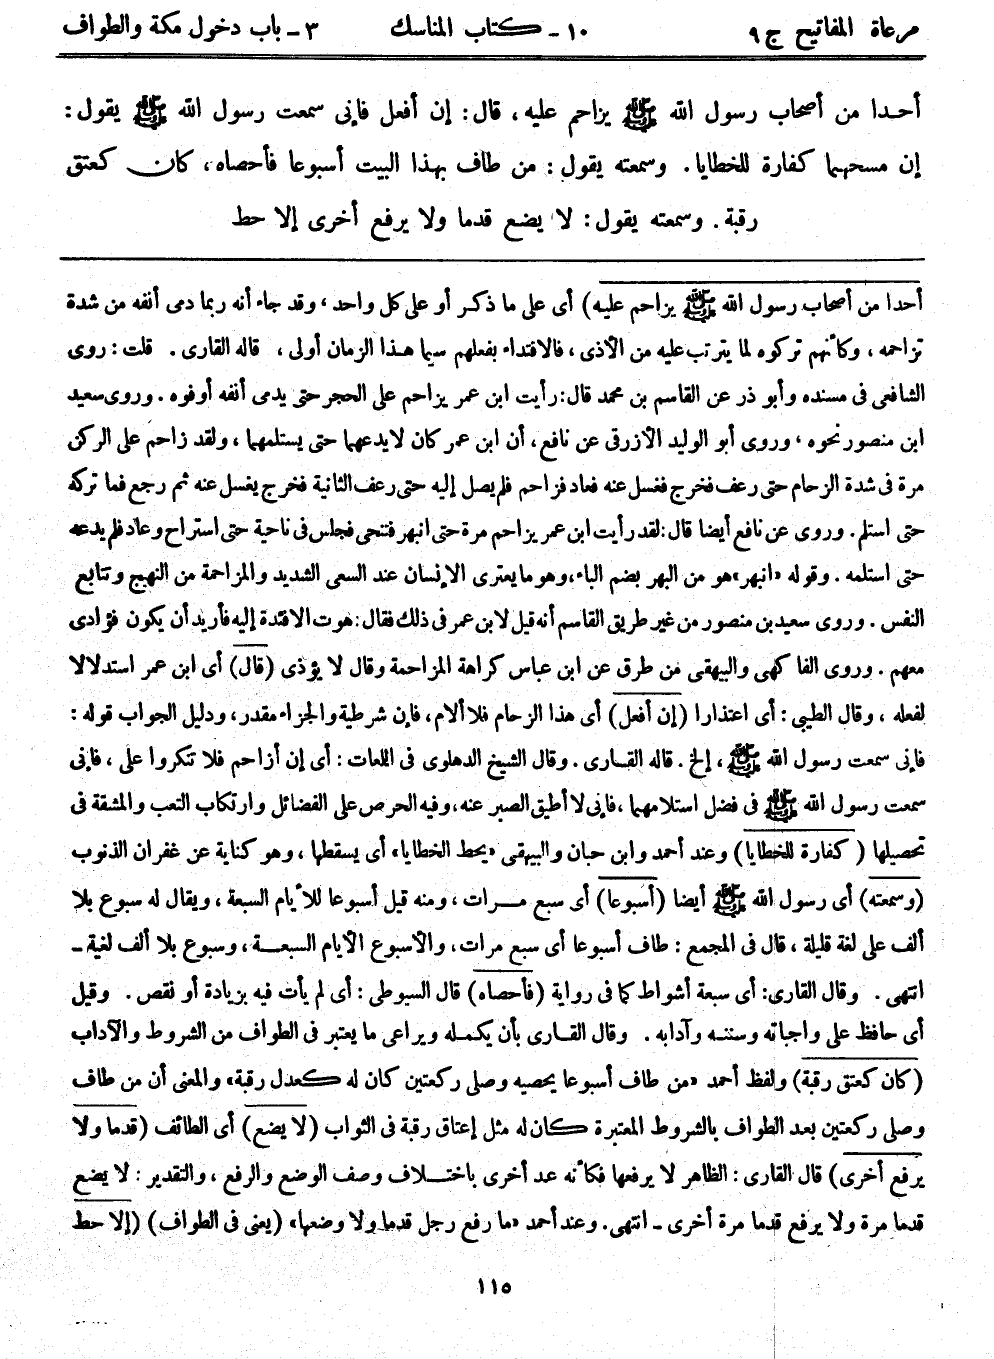 مرعاة المفاتيح ج ٩
١٠ - كتاب المناسك
٣ - باب دخول مكة والطواف
أحدا من أصحاب رسول الله ﷺ يزاحم عليه، قال: إن أفعل فإنى سمعت رسول الله ﷺ يقول:
إن مسحهما كفارة للخطايا. وسمعته يقول: من طاف بهذا البيت أسبوعا فأحصاه، كان كعتق
رقبة. وسمعته يقول: لا يضع قدما ولا يرفع أخرى إلا حط
أحدا من أصحاب رسول الله ﷺ يزاحم عليه) أى على ما ذكر أو على كل واحد، وقد جاء أنه ربما دمى أنفه من شدة
تزاحمه، وكأنهم تركوه لما يترتب عليه من الأذى، فالاقتداء بفعلهم سيما هذا الزمان أولى، قاله القارى. قلت: روى
الشافعى فى مسنده وأبو ذر عن القاسم بن محمد قال: رأيت ابن عمر يزاحم على الحجر حتى يدمى أنفه أوفوه. وروى سعيد
ابن منصور نحوه، وروى أبو الوليد الأزرقى عن نافع، أن ابن عمر كان لا يدعهما حتى يستلمهما، ولقد زاحم على الركن
مرة فى شدة الزحام حتى رعف فخرج فغسل عنه فعاد فزاحم فلم يصل إليه حتى رعف الثانية فخرج يغسل عنه ثم رجع فما تركه
حتى استلم. وروى عن نافع أيضا قال: لقد رأيت ابن عمر يزاحم مرة حتى انبهر فتنحى فجلس فى ناحية حتى استراح وعاد فلم يدعه
حتى استلمه. وقوله «انبهر» هو من البهر بضم الباء، وهو ما يعترى الإنسان عند السعى الشديد والمزاحمة من النهيج وتتابع
النفس. وروى سعيد بن منصور من غير طريق القاسم أنه قيل لابن عمر فى ذلك فقال: هوت الافئدة إليه فأريد أن يكون فؤادى
معهم. وروى الفاكهى والبيهقى من طرق عن ابن عباس كراهة المزاحمة وقال لا يؤذى (قال) أى ابن عمر استدلالا
لفعله، وقال الطيبى: أى اعتذارا (إن أفعل) أى هذا الزحام فلا ألام، فإن شرطية والجزاء مقدر، ودليل الجواب قوله:
فإنى سمعت رسول الله ﷺ، إلخ. قاله القارى. وقال الشيخ الدهلوى فى اللمعات: أى إن أزاحم فلا تنكروا على، فإنى
سمعت رسول الله ﷺ فى فضل استلامهما، فإنى لا أطيق الصبر عنه، وفيه الحرص على الفضائل وارتكاب التعب والمشقة فى
تحصيلها (كفارة للخطايا) وعند أحمد وابن حبان والبيهقى «يحط الخطايا» أى يسقطها، وهو كناية عن غفران الذنوب
(وسمعته) أى رسول الله ﷺ أيضا (أسبوعا) أى سبع مرات، ومنه قيل أسبوعا للأيام السبعة، ويقال له سبوع بلا
ألف على لغة قليلة، قال فى المجمع: طاف أسبوعا أى سبع مرات، والأسبوع الأيام السبعة، وسبوع بلا ألف لغية -
انتهى. وقال القارى: أى سبعة أشواط كما فى رواية (فأحصاه) قال السيوطى: أى لم يأت فيه بزيادة أو نقص. وقيل
أى حافظ على واجباته وسننه وآدابه. وقال القارى بأن يكمله ويراعى ما يعتبر فى الطواف من الشروط والآداب
(كان كعتق رقبة) ولفظ أحمد «من طاف أسبوعا يحصيه وصلى ركعتين كان له كعدل رقبة» والمعنى أن من طاف
وصلى ركعتين بعد الطواف بالشروط المعتبرة كان له مثل إعتاق رقبة فى الثواب (لا يضع) أى الطائف (قدما ولا
يرفع أخرى) قال القارى: الظاهر لا يرفعها فكأنه عد أخرى باختلاف وصف الوضع والرفع، والتقدير: لا يضع
قدما مرة ولا يرفع قدما مرة أخرى - انتهى. وعند أحمد «ما رفع رجل قدما ولا وضعها» (يعنى فى الطواف) (إلا حط
١١٥